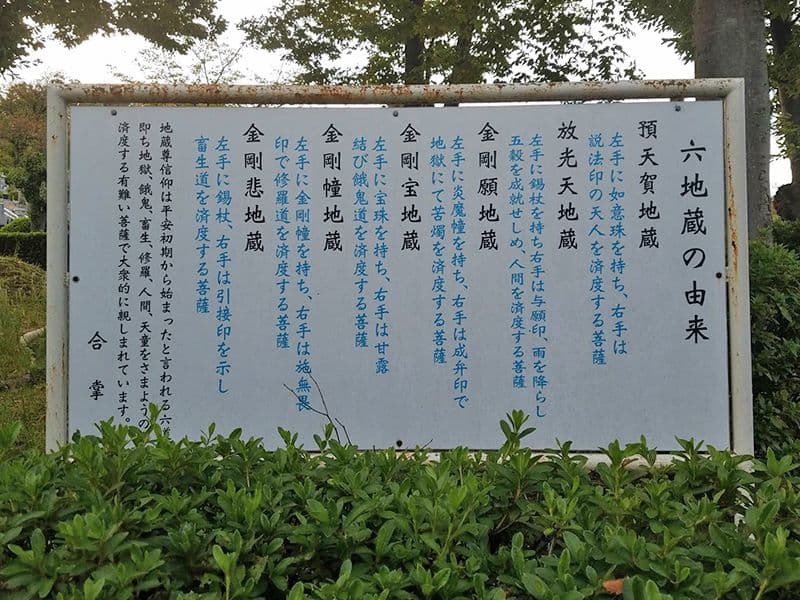 六地蔵の由来
預天賀地蔵
左手に如意珠を持ち、右手は
説法印の天人を済度する菩薩
放光天地蔵
左手に錫杖を持ち右手は与願印、雨を降らし
五穀を成就せしめ、人間を済度する菩薩
金剛願地蔵
左手に炎魔幢を持ち、右手は成弁印で
地獄にて苦燭を済度する菩薩
金剛宝地蔵
左手に宝珠を持ち、右手は甘露
結び餓鬼道を済度する菩薩
金剛幢地蔵
左手に金剛幢を持ち、右手は施無畏
印で修羅道を済度する菩薩
金剛悲地蔵
左手に錫杖、右手は引接印を示し
畜生道を済度する菩薩
地蔵尊信仰は平安初期から始まったと言われる六
即ち地獄、餓鬼、畜生、修羅、人間、天童をさまようの
済度する有難い菩薩で大衆的に親しまれています。
合掌